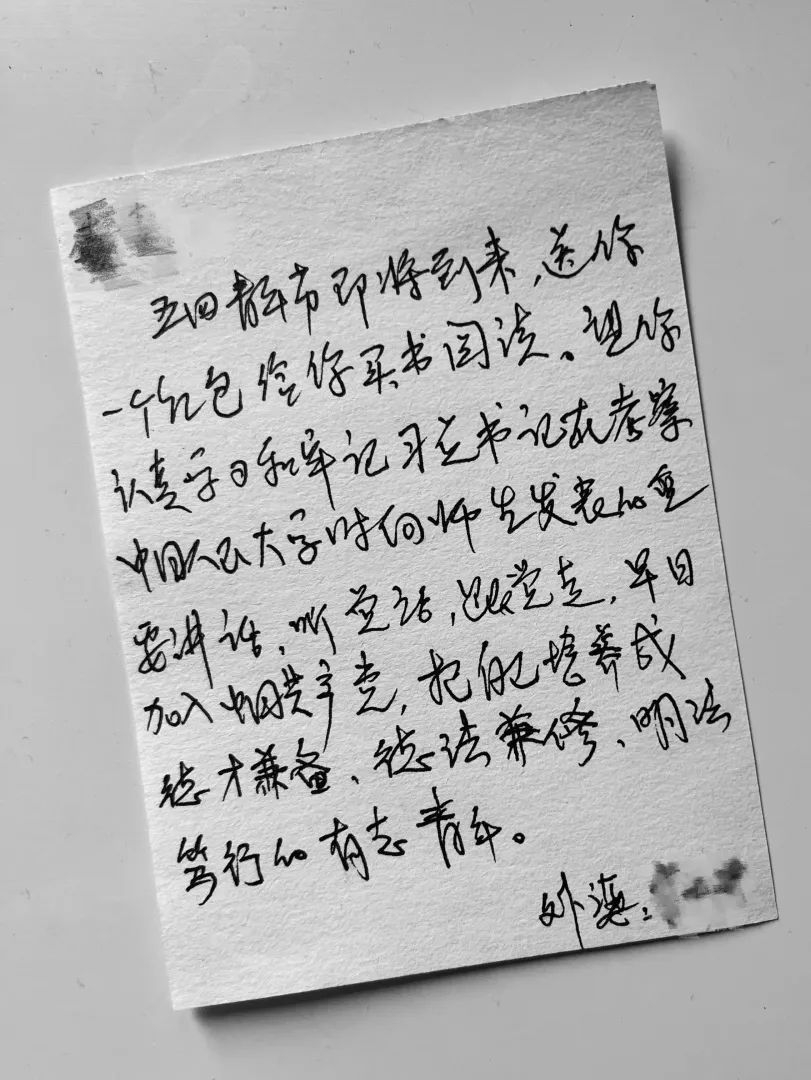 五四青年节即将到来，送你
一个红包给你买书阅读。望你
认真学习和牢记习总书记在考察
中国人民大学时向师生发表的重
要讲话，听党话，跟党走，早日
加入中国共产党，把自己培养成
德才兼备、德法兼修、明法
笃行的有志青年。
外婆：